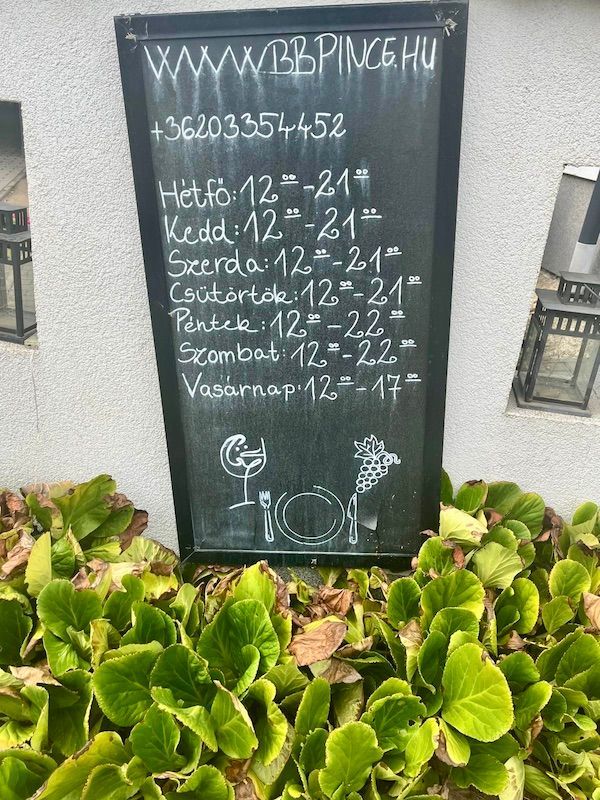 WWW.BBPINCE.HU
+36203354452
Hétfő: 12⁰⁰-21⁰⁰
Kedd: 12⁰⁰-21⁰⁰
Szerda: 12⁰⁰-21⁰⁰
Csütörtök: 12⁰⁰-21⁰⁰
Péntek: 12⁰⁰-22⁰⁰
Szombat: 12⁰⁰-22⁰⁰
Vasárnap: 12⁰⁰-17⁰⁰